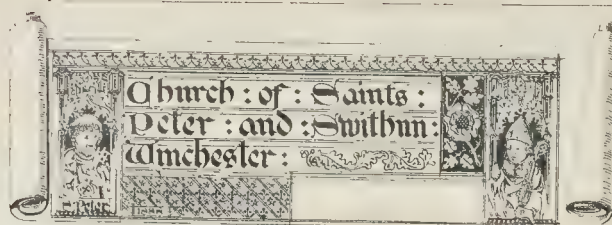 Church : of : Saints :
Peter : and : Swithun :
Winchester :
S Peter